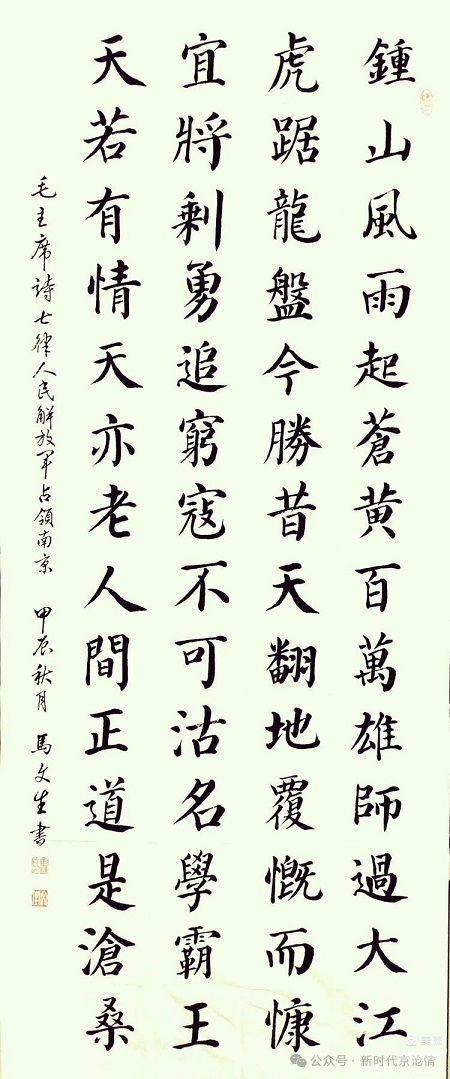 鍾山風雨起蒼黄百萬雄師過大江
虎踞龍盤今勝昔天翻地覆慨而慷
宜將剩勇追窮寇不可沽名學霸王
天若有情天亦老人間正道是滄桑
毛主席詩七律人民解放军占領南京 甲辰秋月 馬文生書
公众号·新时代京沧情